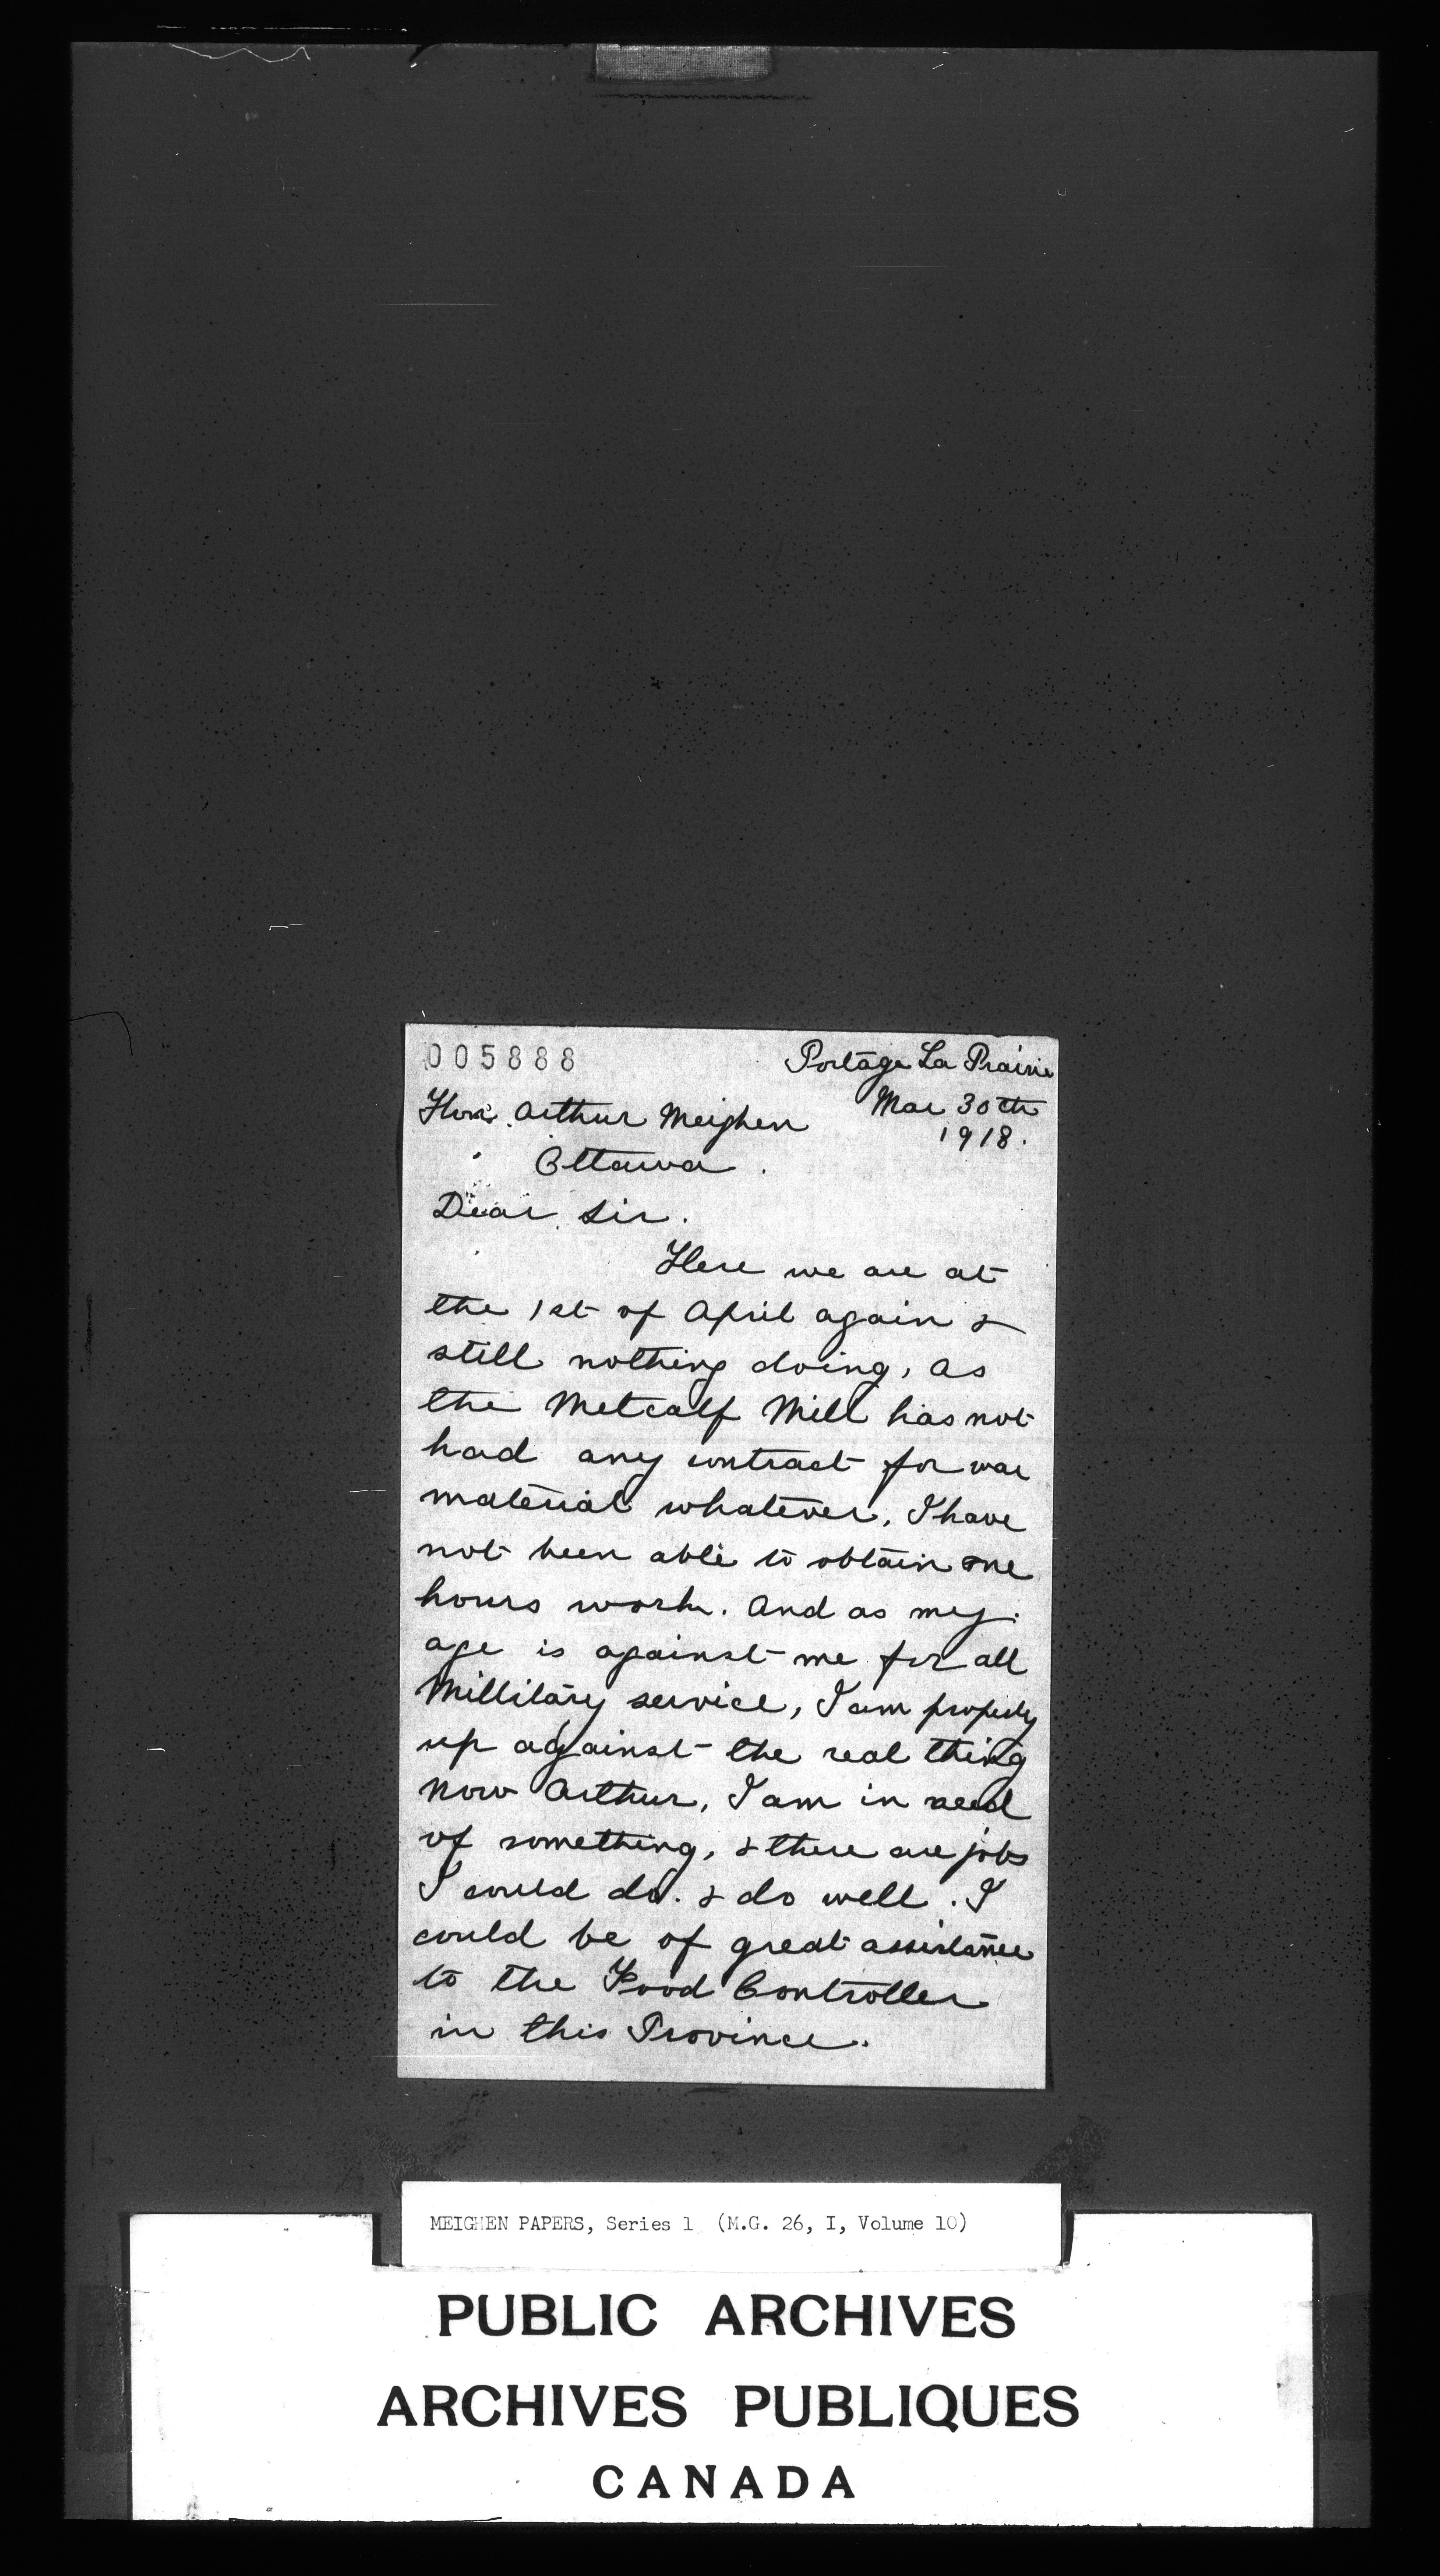 005888
Portage La Prairie
Hon. Arthur Meighen
Mar 30th
1918.
Ottawa.
Dear Sir.
Here we are at
the 1st of April again &
still nothing doing, as
the Metcalf Mill has not
had any contract for war
material whatever, I have
not been able to obtain one
hours work. And as my
age is against me for all
Millitary service, I am properly
up against the real thing
now Arthur, I am in need
of something, & there are jobs
I could do. & do well. I
could be of great assistance
to the Food Controller
in this Province.
MEIGHEN PAPERS, Series 1 (M.G. 26, I, Volume 10)
PUBLIC ARCHIVES
ARCHIVES PUBLIQUES
CANADA